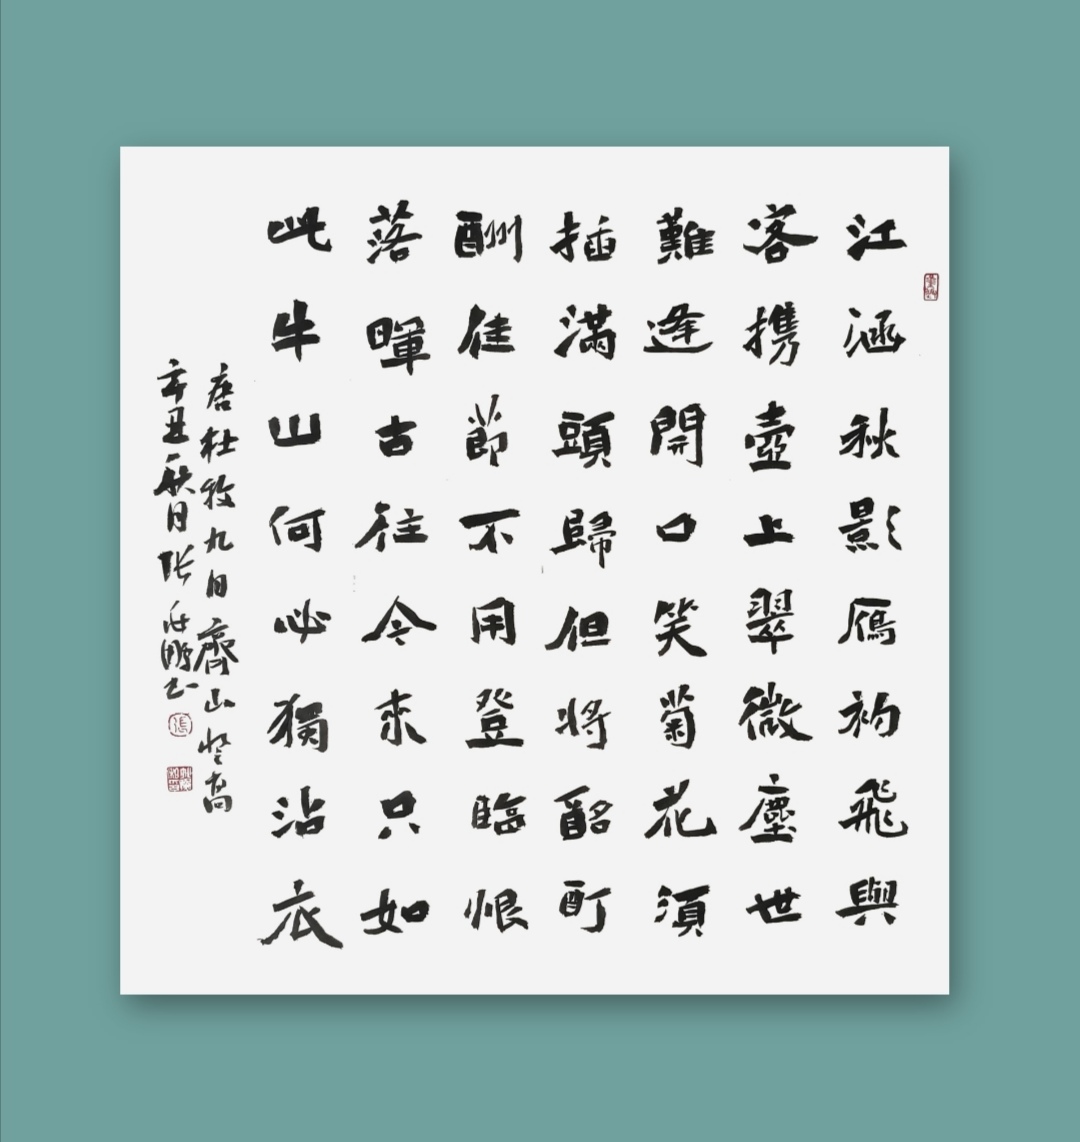 江涵秋影鴈初飛與
客携壺上翠微塵世
難逢開口笑菊花須
插滿頭歸但將酩酊
酬佳節不用登臨恨
落暉古往今來只如
此牛山何必獨沾衣
唐杜牧九日齊山登高
辛丑秋日张鹏书